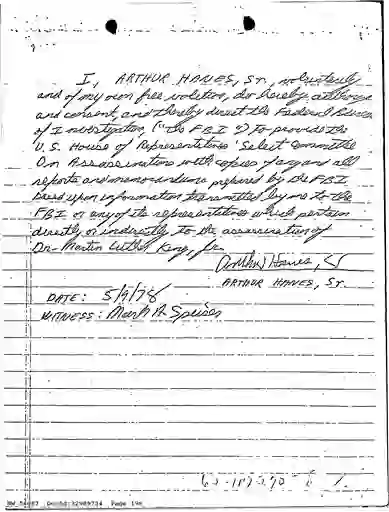 I, ARTHUR HANES, Sr., voluntarily
and of my own free volition, do hereby authorize
and consent, and thereby direct the Federal Bureau
of Investigation, ("the FBI") to provide the
U.S. House of Representatives' Select Committee
On Assassinations with copies of any and all
reports and memorandums prepared by the FBI
based upon information transmitted by me to the
FBI or any of its representatives which pertain
directly or indirectly to the assassination of
Dr. Martin Luther King, Jr.
Arthur Hanes, Sr
ARTHUR HANES, Sr.
DATE: 5/9/78
WITNESS: Mark A. Speiser
62-117290
DocId:32989734 Page 196